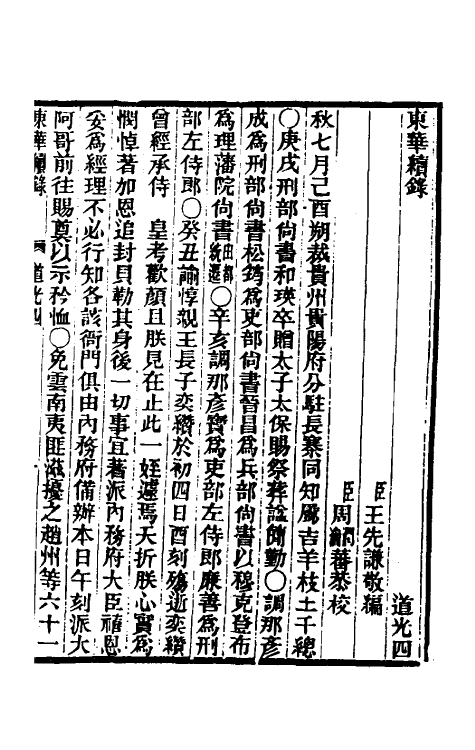 東華續錄
道光四
臣王先謙敬編
臣周潤蕃恭校
秋七月己酉朔裁貴州貴陽府分駐長寨同知屬吉羊枝土千總
○庚戌刑部尙書和瑛卒贈太子太保賜祭葬諡簡勤○調那彥
成爲刑部尙書松筠爲吏部尙書晉昌爲兵部尙書以穆克登布
爲理藩院尙書由都統遷○辛亥調那彥寶爲吏部左侍郞廉善爲刑
部左侍郞○癸丑諭惇親王長子奕纘於初四日酉刻殤逝奕纘
曾經承侍 皇考歡顏且朕見在止此一姪遽焉夭折朕心實爲
憫悼著加恩追封貝勒其身後一切事宜著派內務府大臣禧恩
妥爲經理不必行知各該衙門俱由內務府備辦本日午刻派大
阿哥前往賜奠以示矜恤○免雲南夷匪滋擾之趙州等六十一
東華續錄 道光四